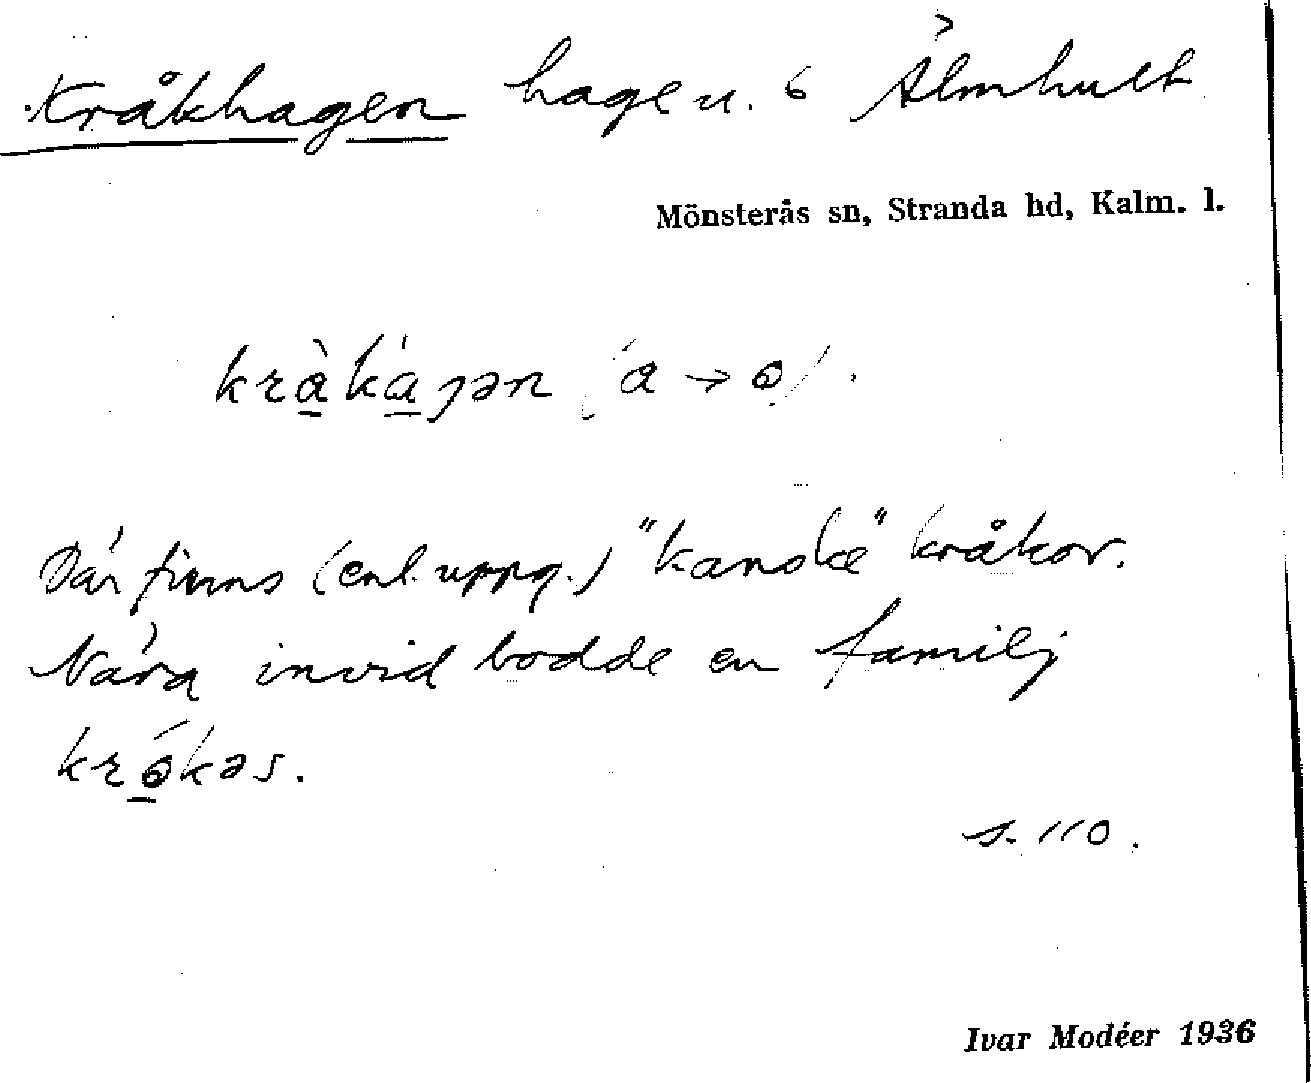 Kråkhagen hage u. 6 Älmhult
Mönsterås sn, Stranda hd, Kalm. l.
kràkáɡən (a → ɵ).
Där finns (enl. uppg.) "kanske" kråkor.
Nära invid bodde en familj
krɵ́kəs.
s. 110.
Ivar Modéer 1936